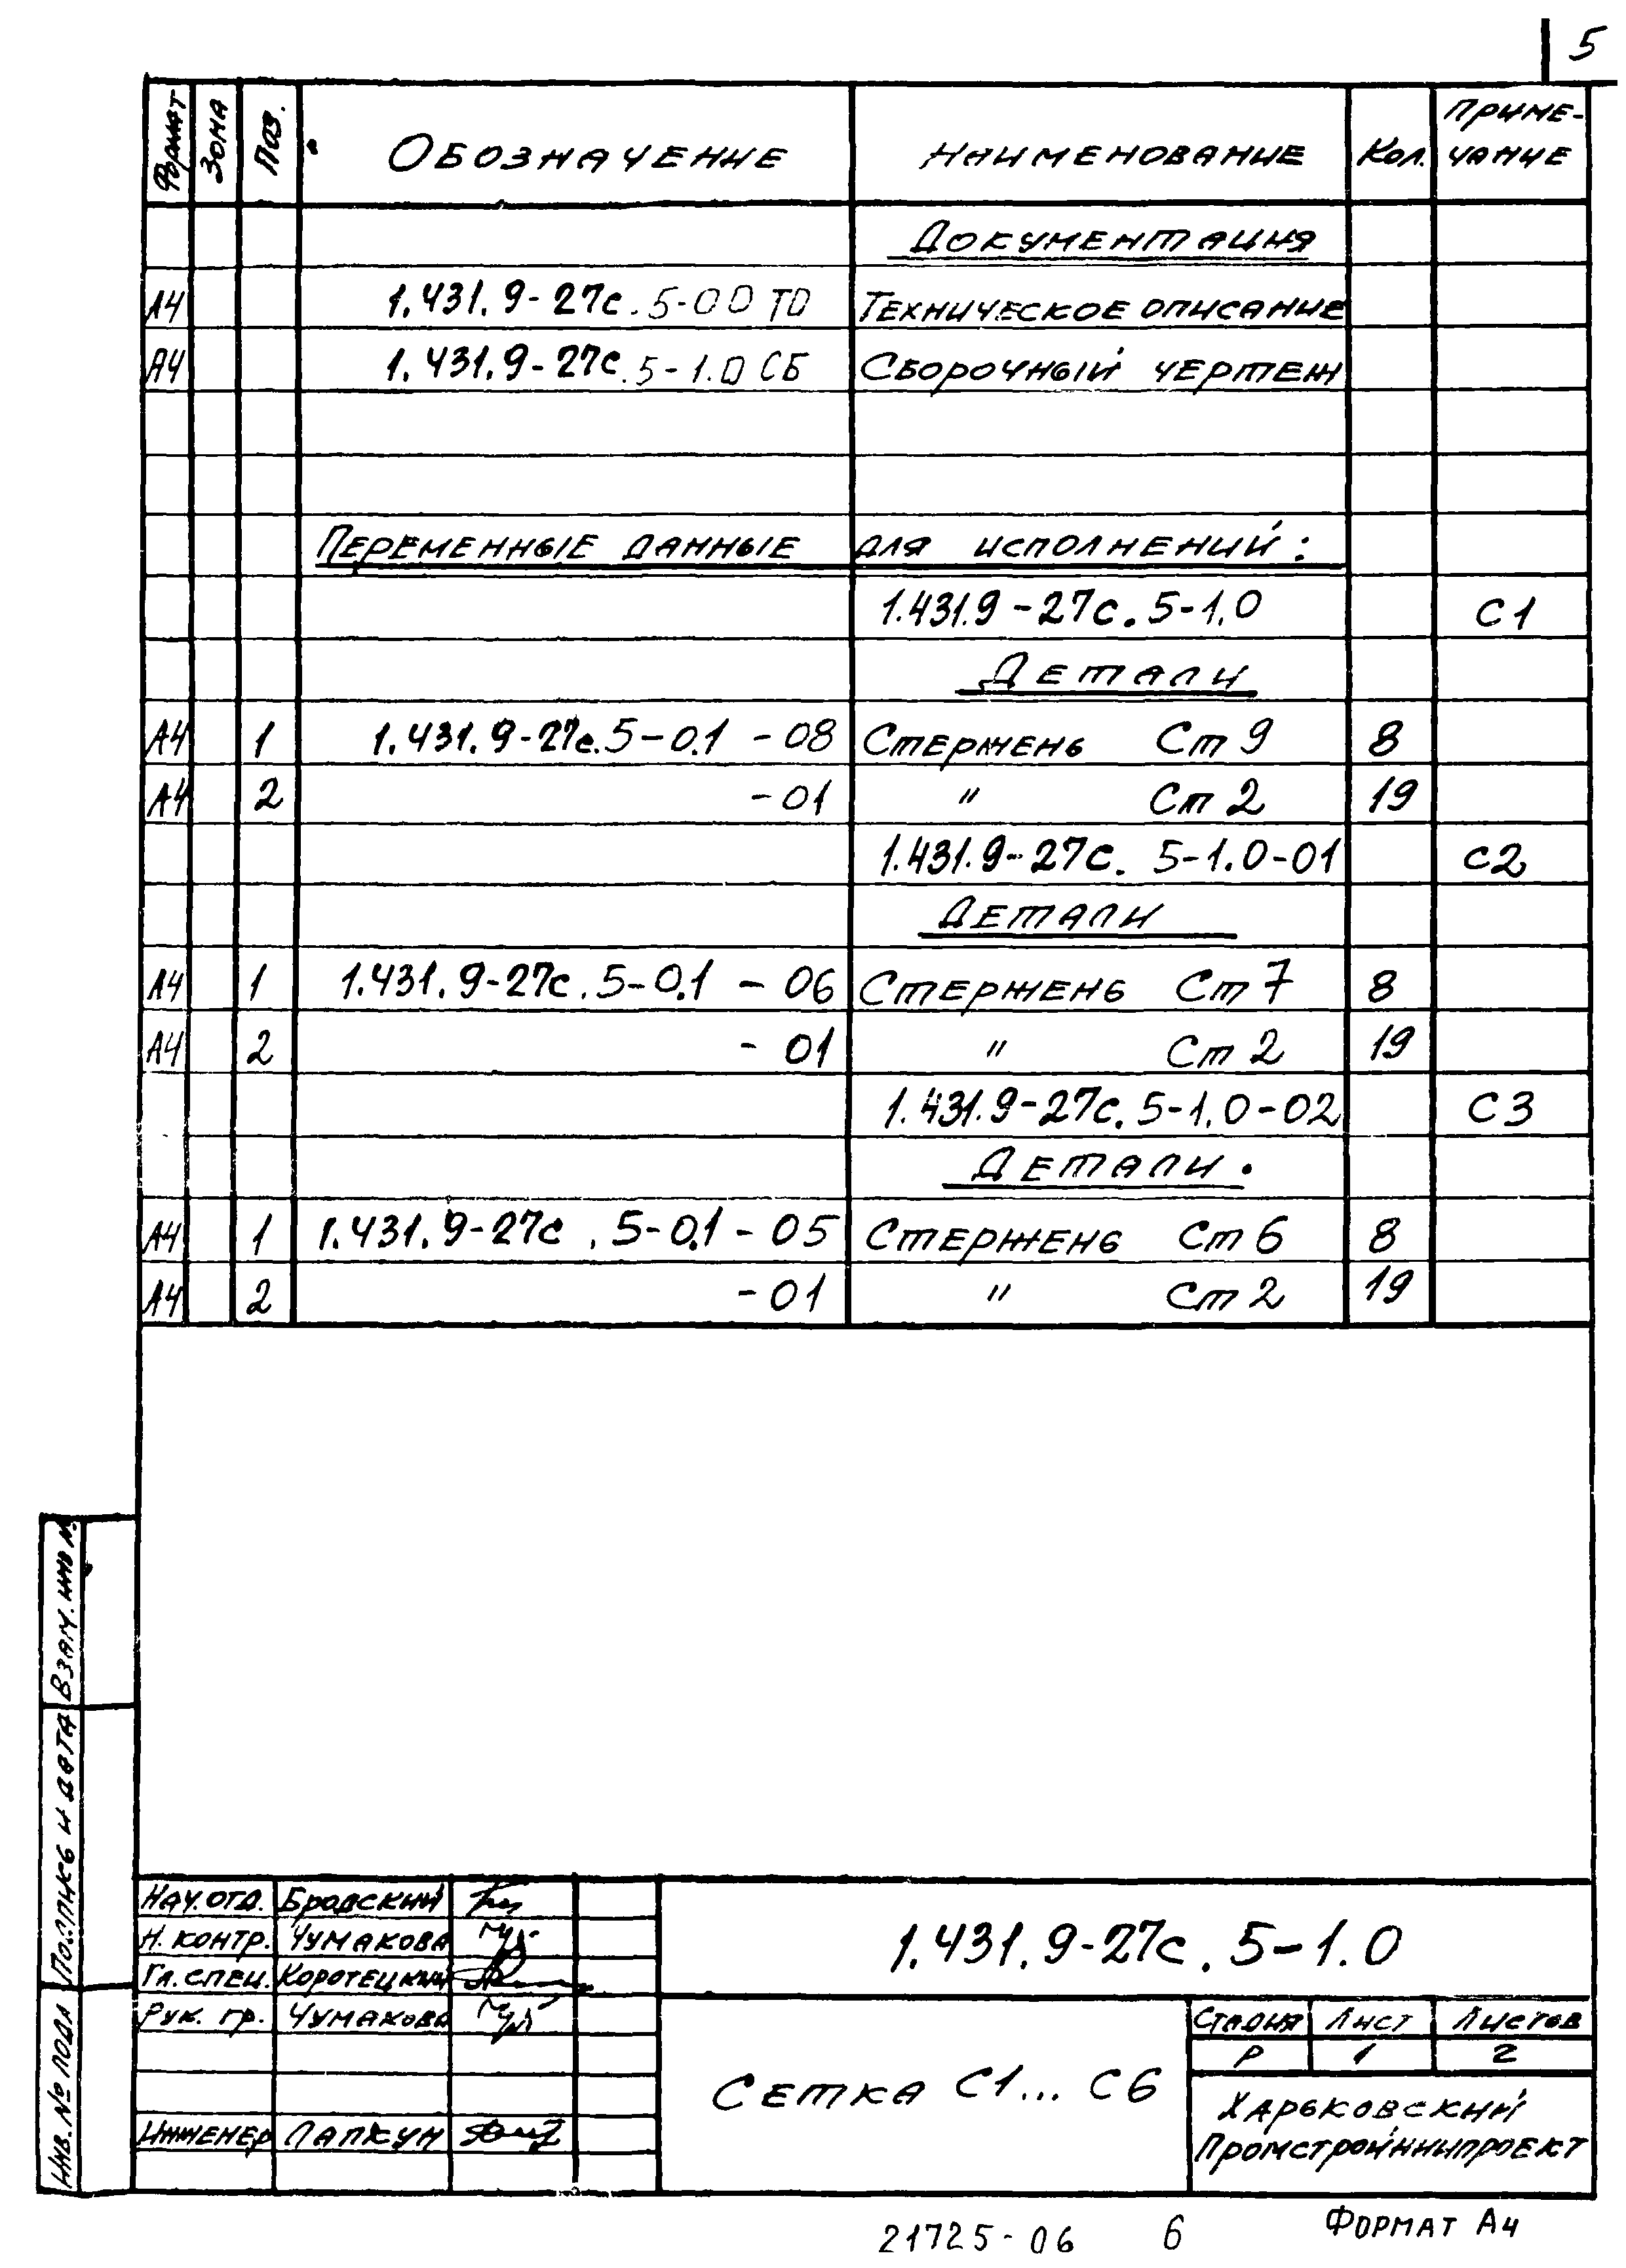 5
Формат Зона Поз. Обозначение Наименование Кол. Примечание
Документация
А4 1.431.9-27с.5-00 ТО Техническое описание
А4 1.431.9-27с.5-1.0 СБ Сборочный чертеж
Переменные данные для исполнений:
1.431.9-27с.5-1.0 С1
Детали
А4 1 1.431.9-27с.5-0.1 -08 Стержень Ст 9 8
А4 2 -01 " Ст 2 19
1.431.9-27с. 5-1.0-01 С2
Детали
А4 1 1.431.9-27с.5-0.1 - 06 Стержень Ст 7 8
А4 2 - 01 " Ст 2 19
1.431.9-27с.5-1.0-02 С3
Детали.
А4 1 1.431.9-27с.5-0.1 - 05 Стержень Ст 6 8
А4 2 -01 " Ст 2 19
Взам. инв №
Подпись и дата
Инв. № подл
Нач. отд. Бродский
Н. контр. Чумакова
Гл. спец. Коротецкий
Рук. гр. Чумакова
Инженер Лапкун
1.431.9-27с.5-1.0
Сетка С1... С6
Стадия Лист Листов
Р 1 2
Харьковский
Промстройниипроект
21725-06 6 Формат А4